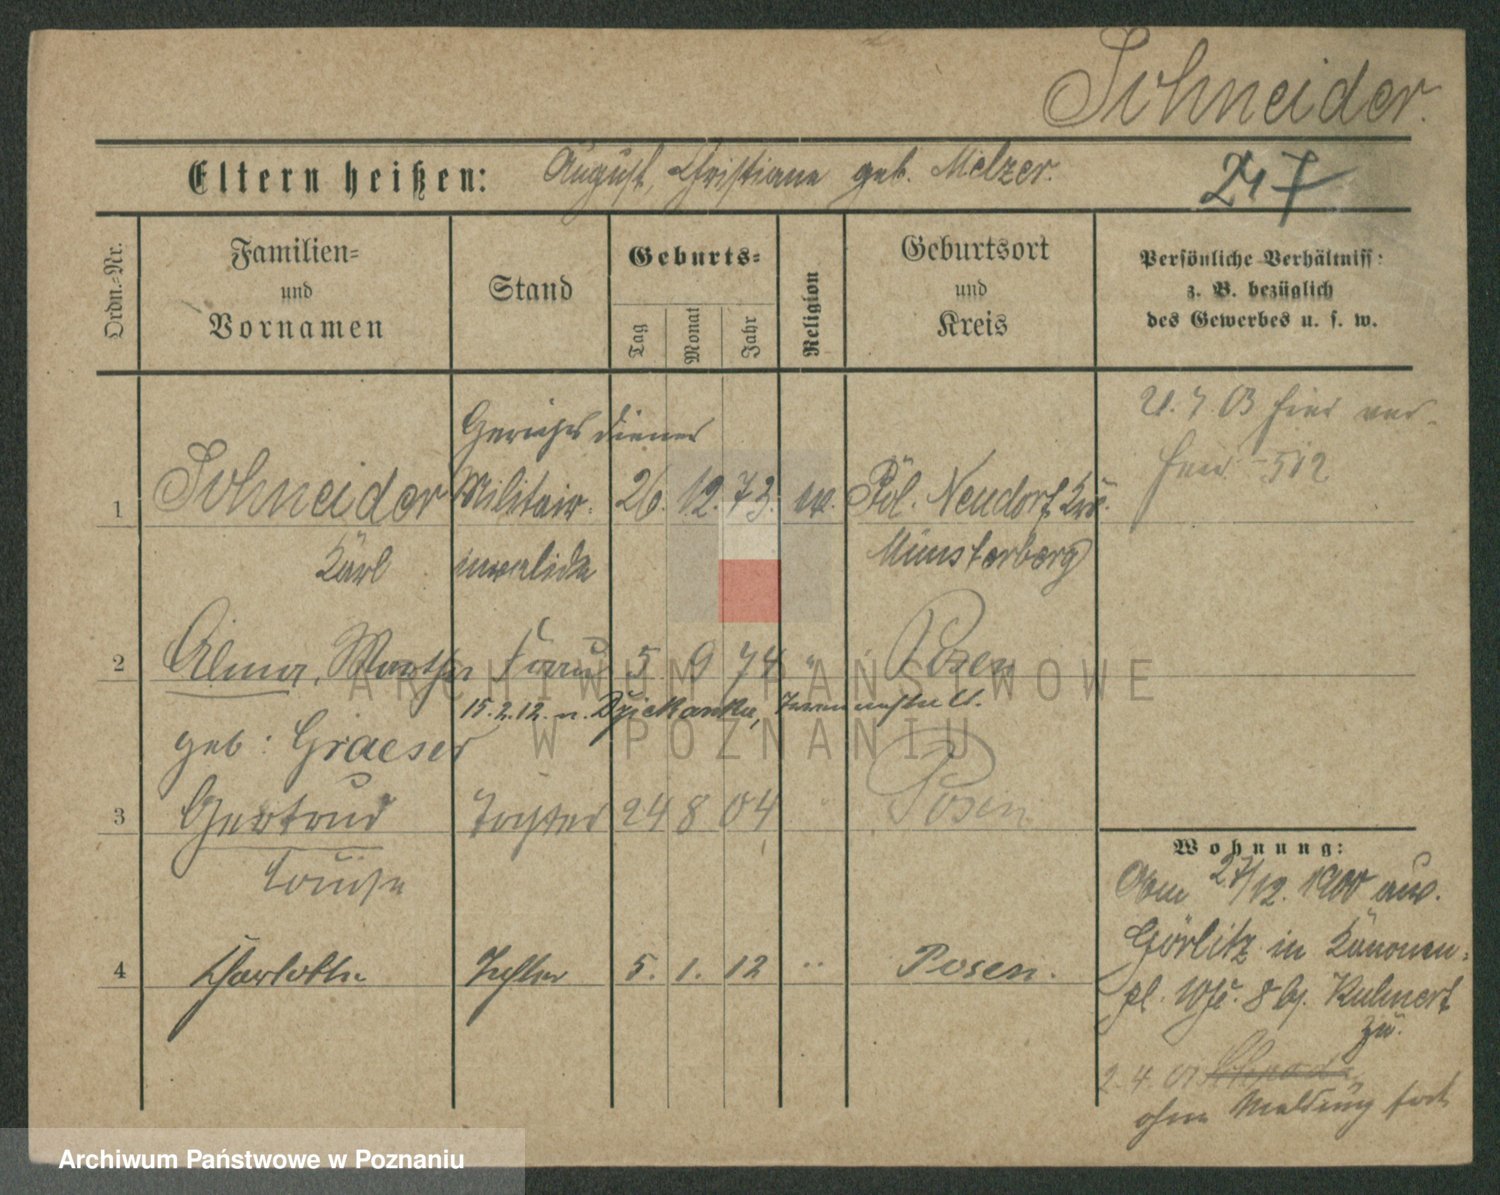 Schneider.
Eltern heißen: August, Christiane geb. Melzer.
247
Ordn.-Nr.
Familien-
und
Vornamen
Stand
Geburts-
Tag
Monat
Jahr
Religion
Geburtsort
und
Kreis
Persönliche Verhältniss:
z. B. bezüglich
des Gewerbes u. s. w.
Gerichtsdiener
1 Schneider Militair- 26. 12. 73. ev. Pol. Neudorf Krs.
Karl invalide Münsterberg
7 03 hier ver-
512
2 Alma, Martha Frau 5 9 74 " Posen
15.2.12. n. Dziekanka, Irrenanstalt.
geb: Graeser
3 Gertrud Tochter 24 8 04 " Posen
Louise
4 Charlotte Tochter 5. 1. 12 " Posen.
Wohnung:
Am 27/12. 1900 aus
Görlitz in Kanonen-
pl. No. 8 bj. Kuhnert
zu.
2. 4. 01
ohne Meldung fort
ARCHIWUM PAŃSTWOWE
W POZNANIU
Archiwum Państwowe w Poznaniu